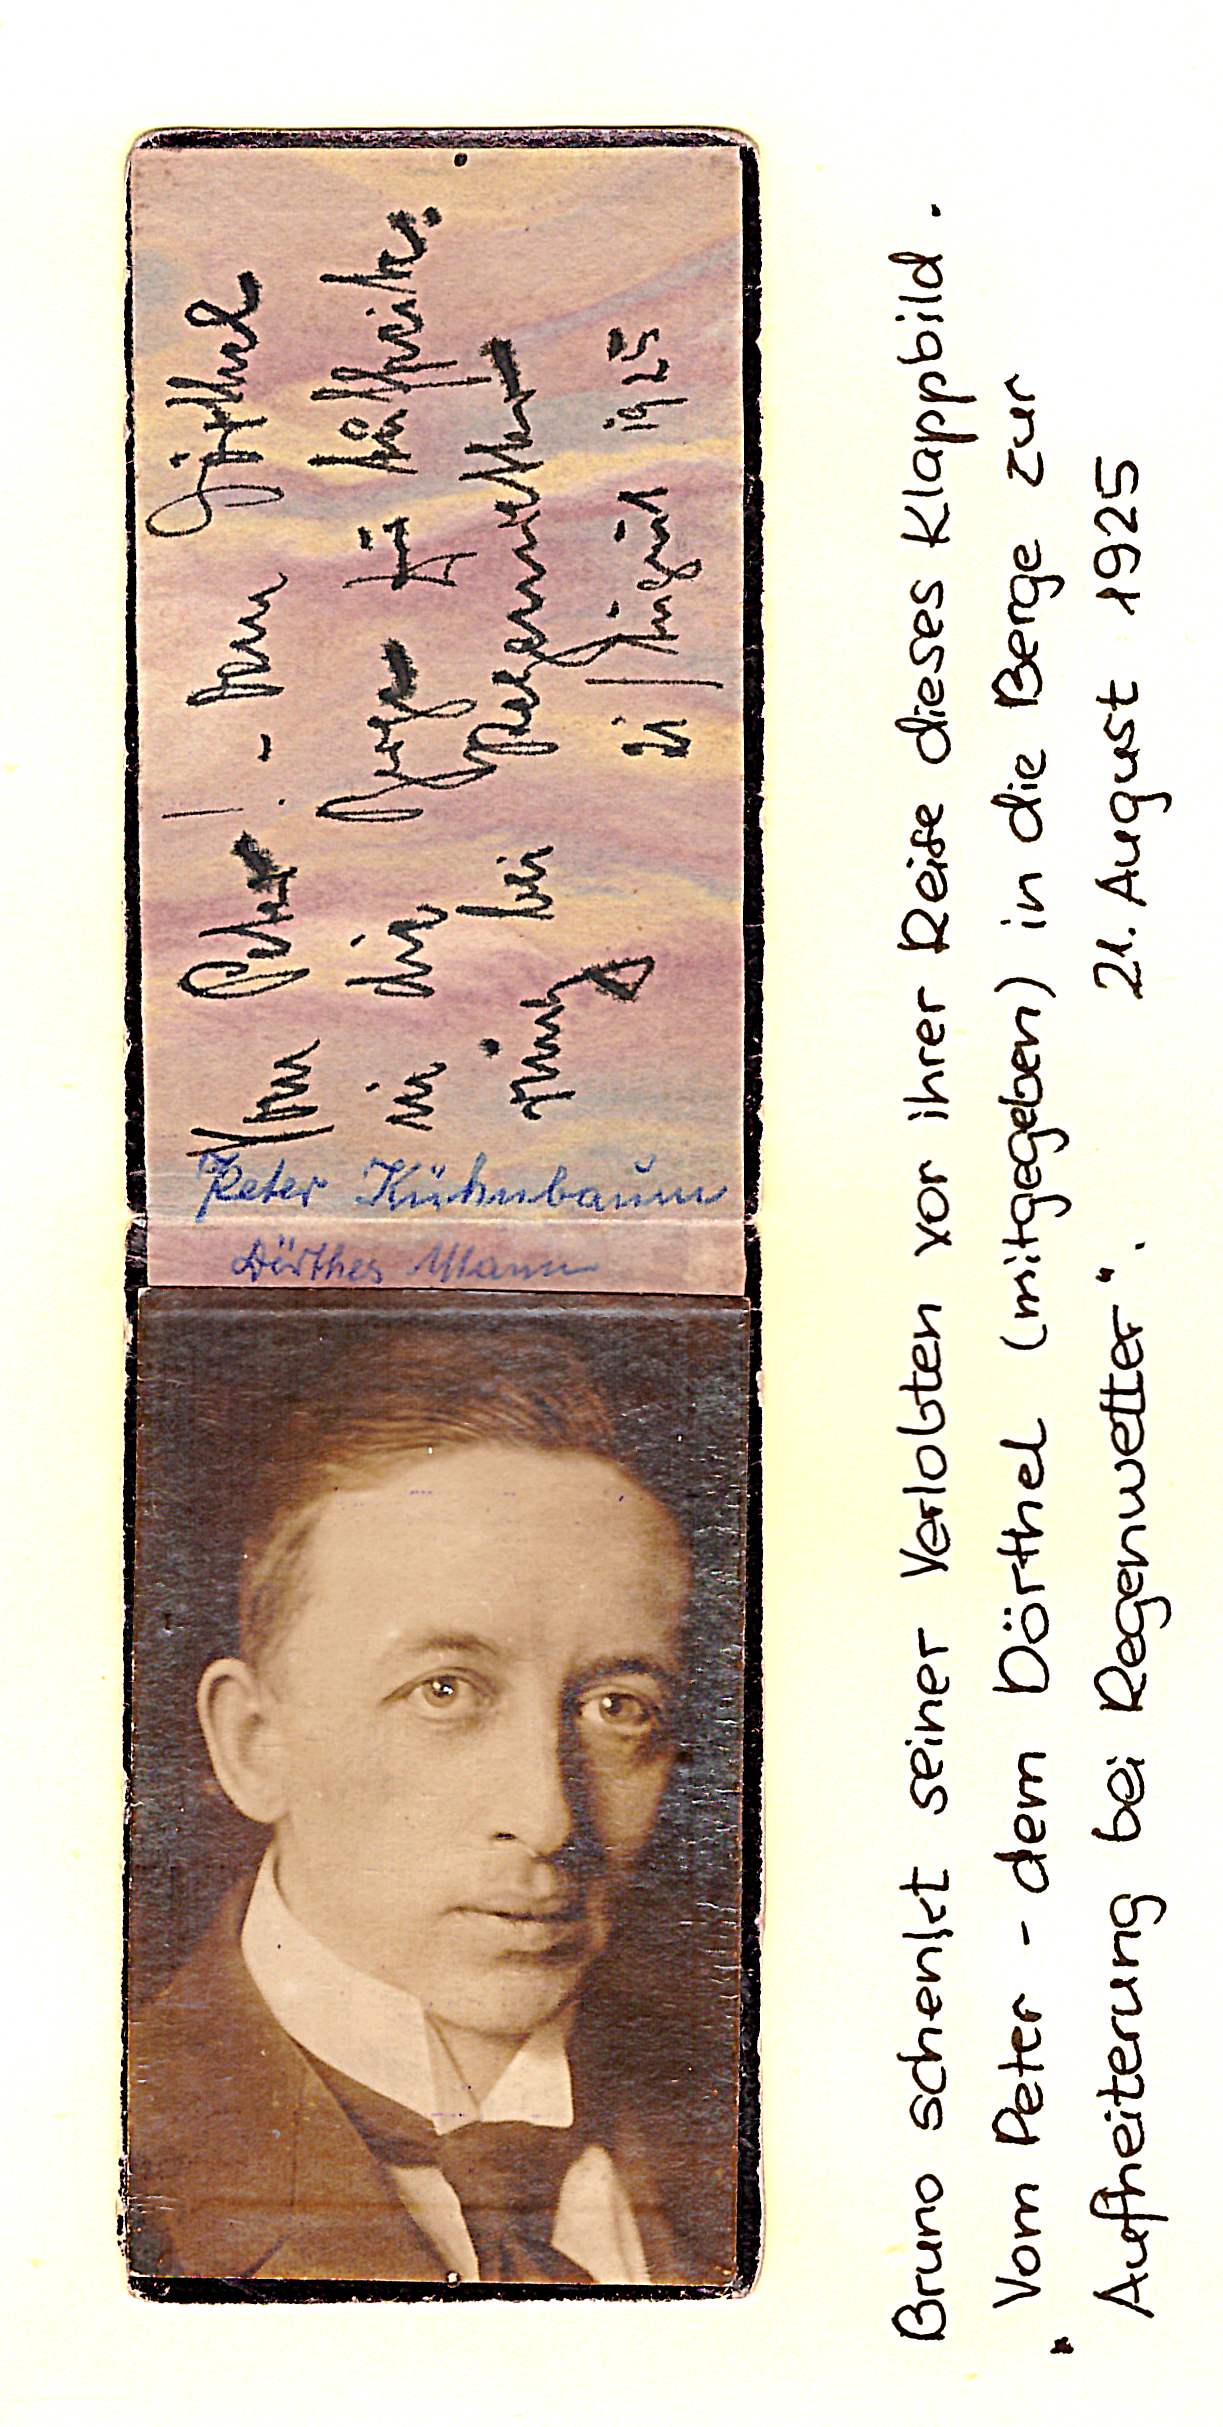 Vom Peter! - dem Dörthel
in die Berge zur Aufheiterung
bei Regenwetter
21 August 1925
Peter Kühnbaum
Dörthes Mann
Bruno schenkt seiner Verlobten vor ihrer Reise dieses Klappbild.
"Vom Peter - dem Dörthel (mitgegeben) in die Berge zur
Aufheiterung bei Regenwetter". 21. August 1925